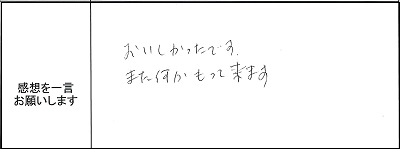 感想を一言
お願いします
おいしかったです。
また何かもって来ます